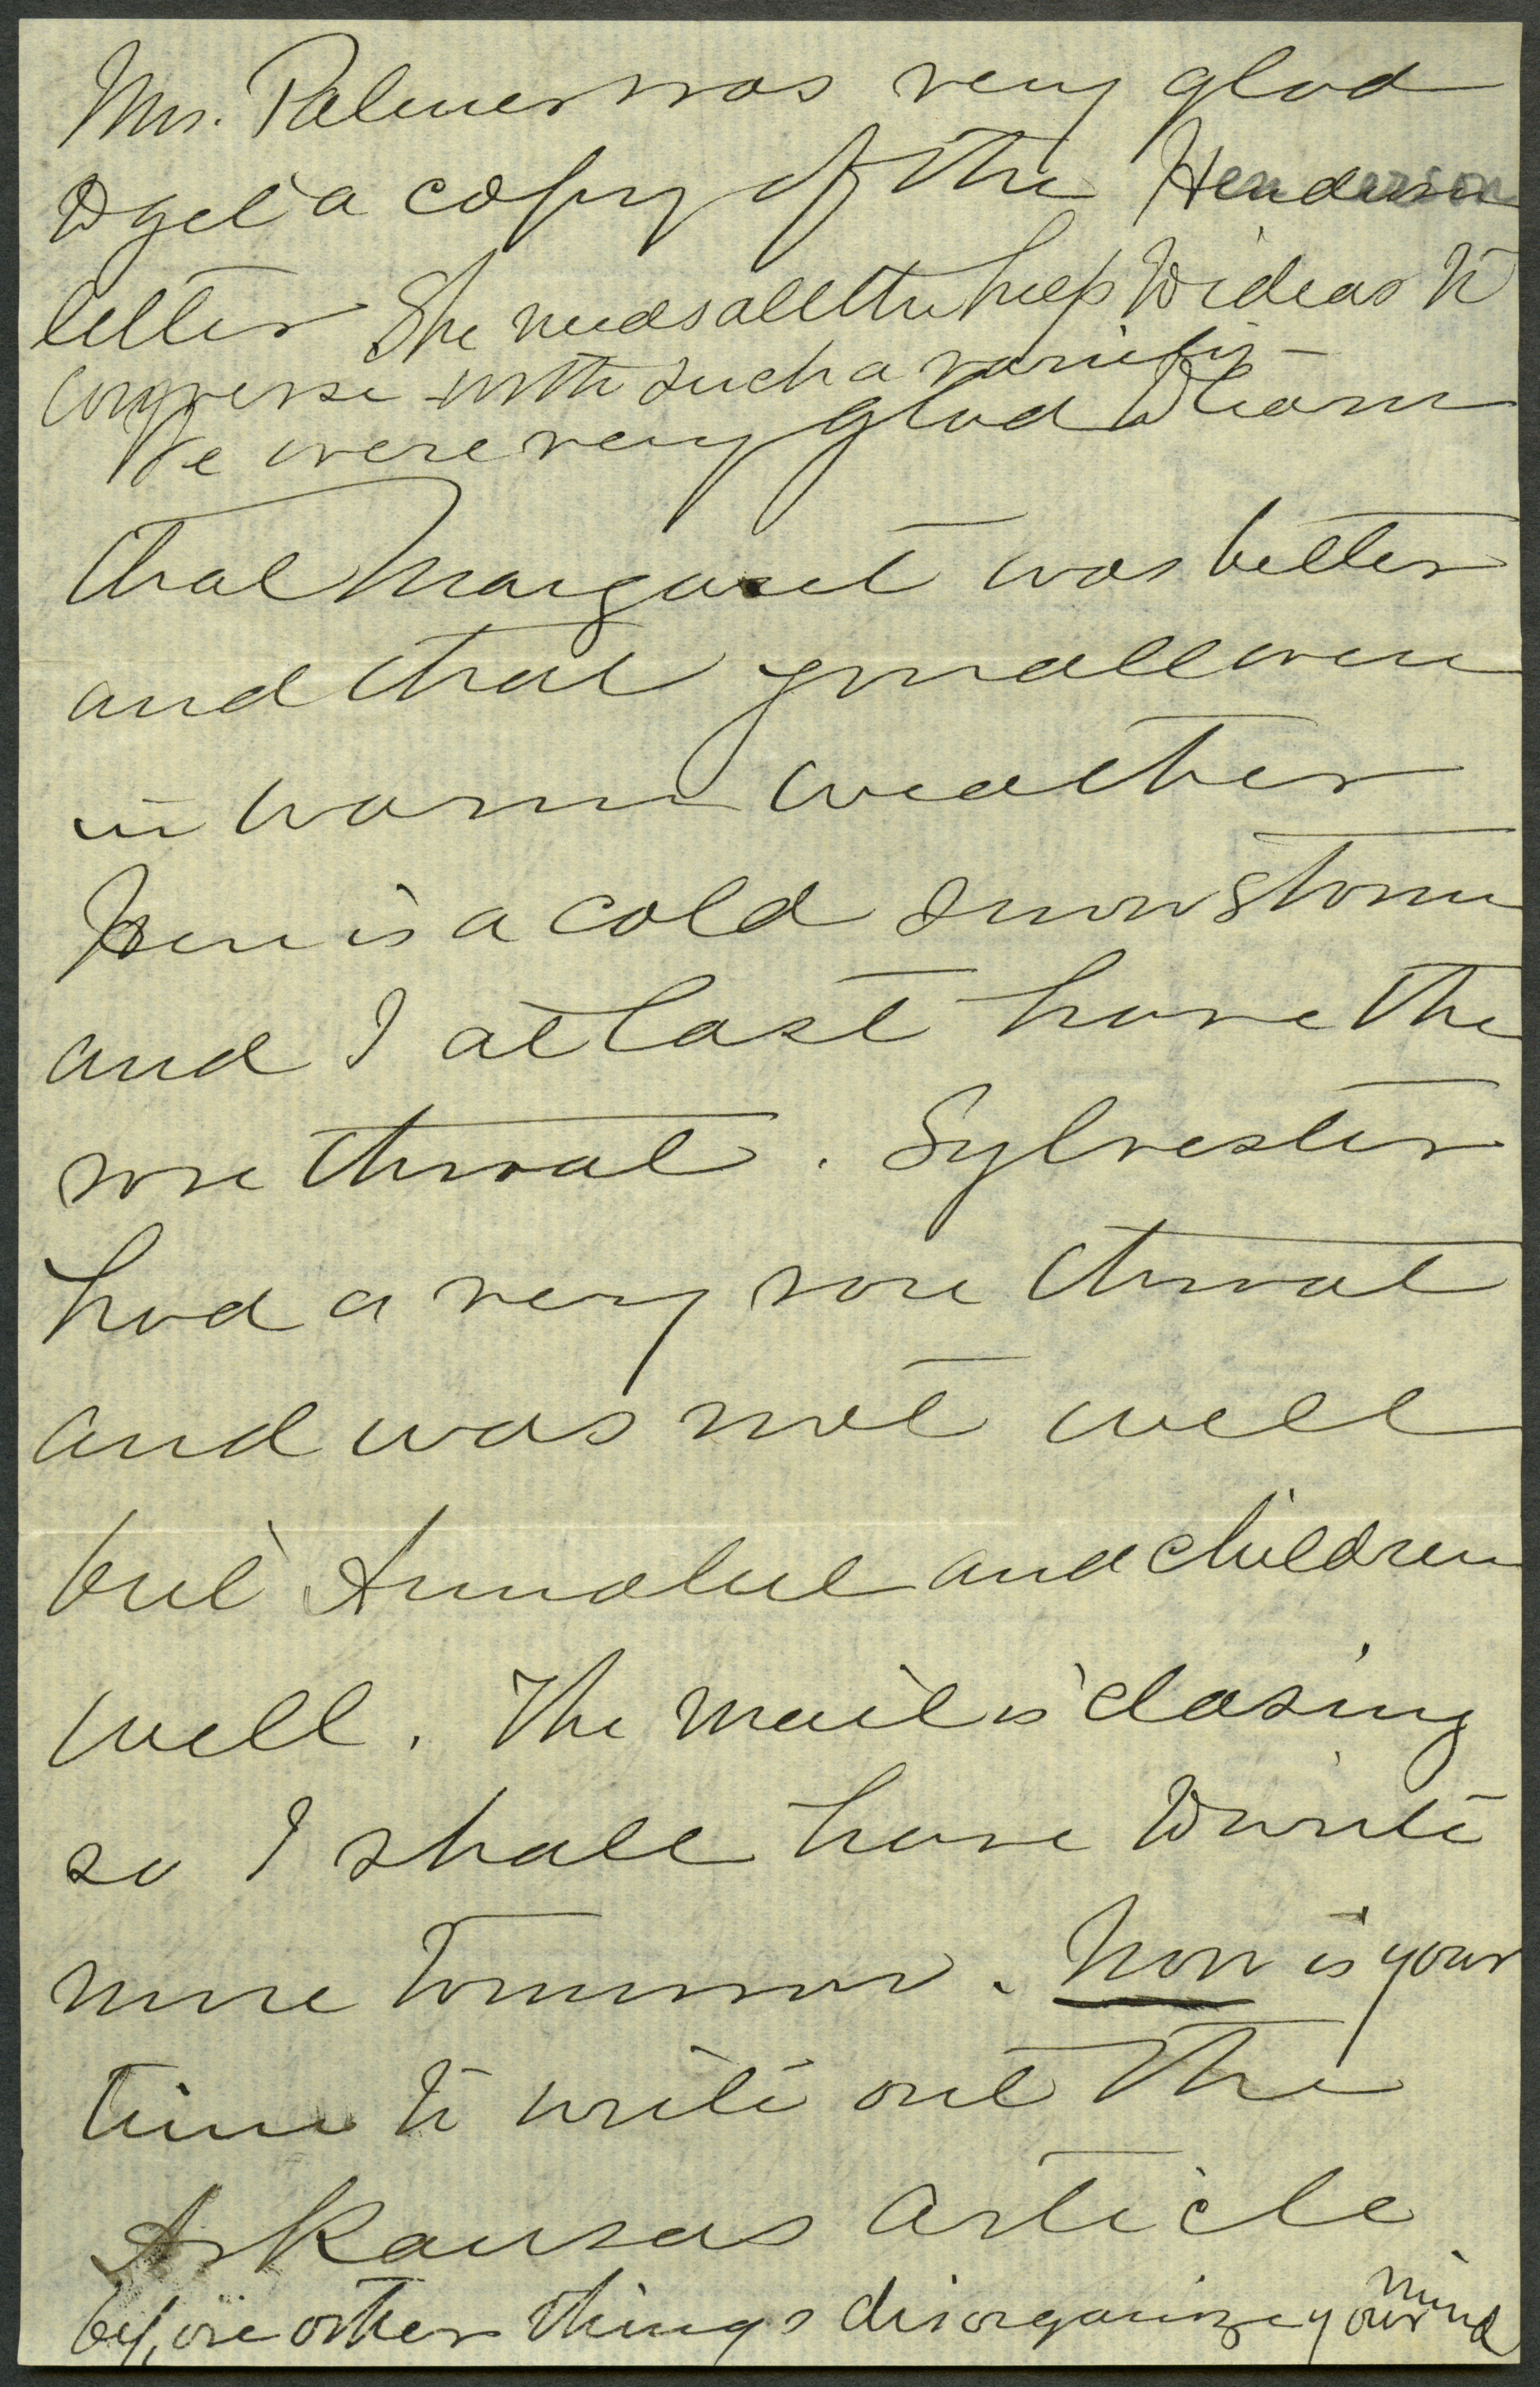 Mrs. Palmer was very glad
to get a copy of the Henderson
letter She needs all the help & ideas to
converse with such a variety -
We were very glad to learn
that Margaret was better
and that you all were
in warm weather
Here is a cold snow storm
and I at last have the
sore throat. Sylvester
had a very sore throat
and was not well
but Annabel and children
well. The mail is closing
so I shall have to write
more tomorrow. Now is your
time to write out the
Arkansas article
before other things disorganize your mind